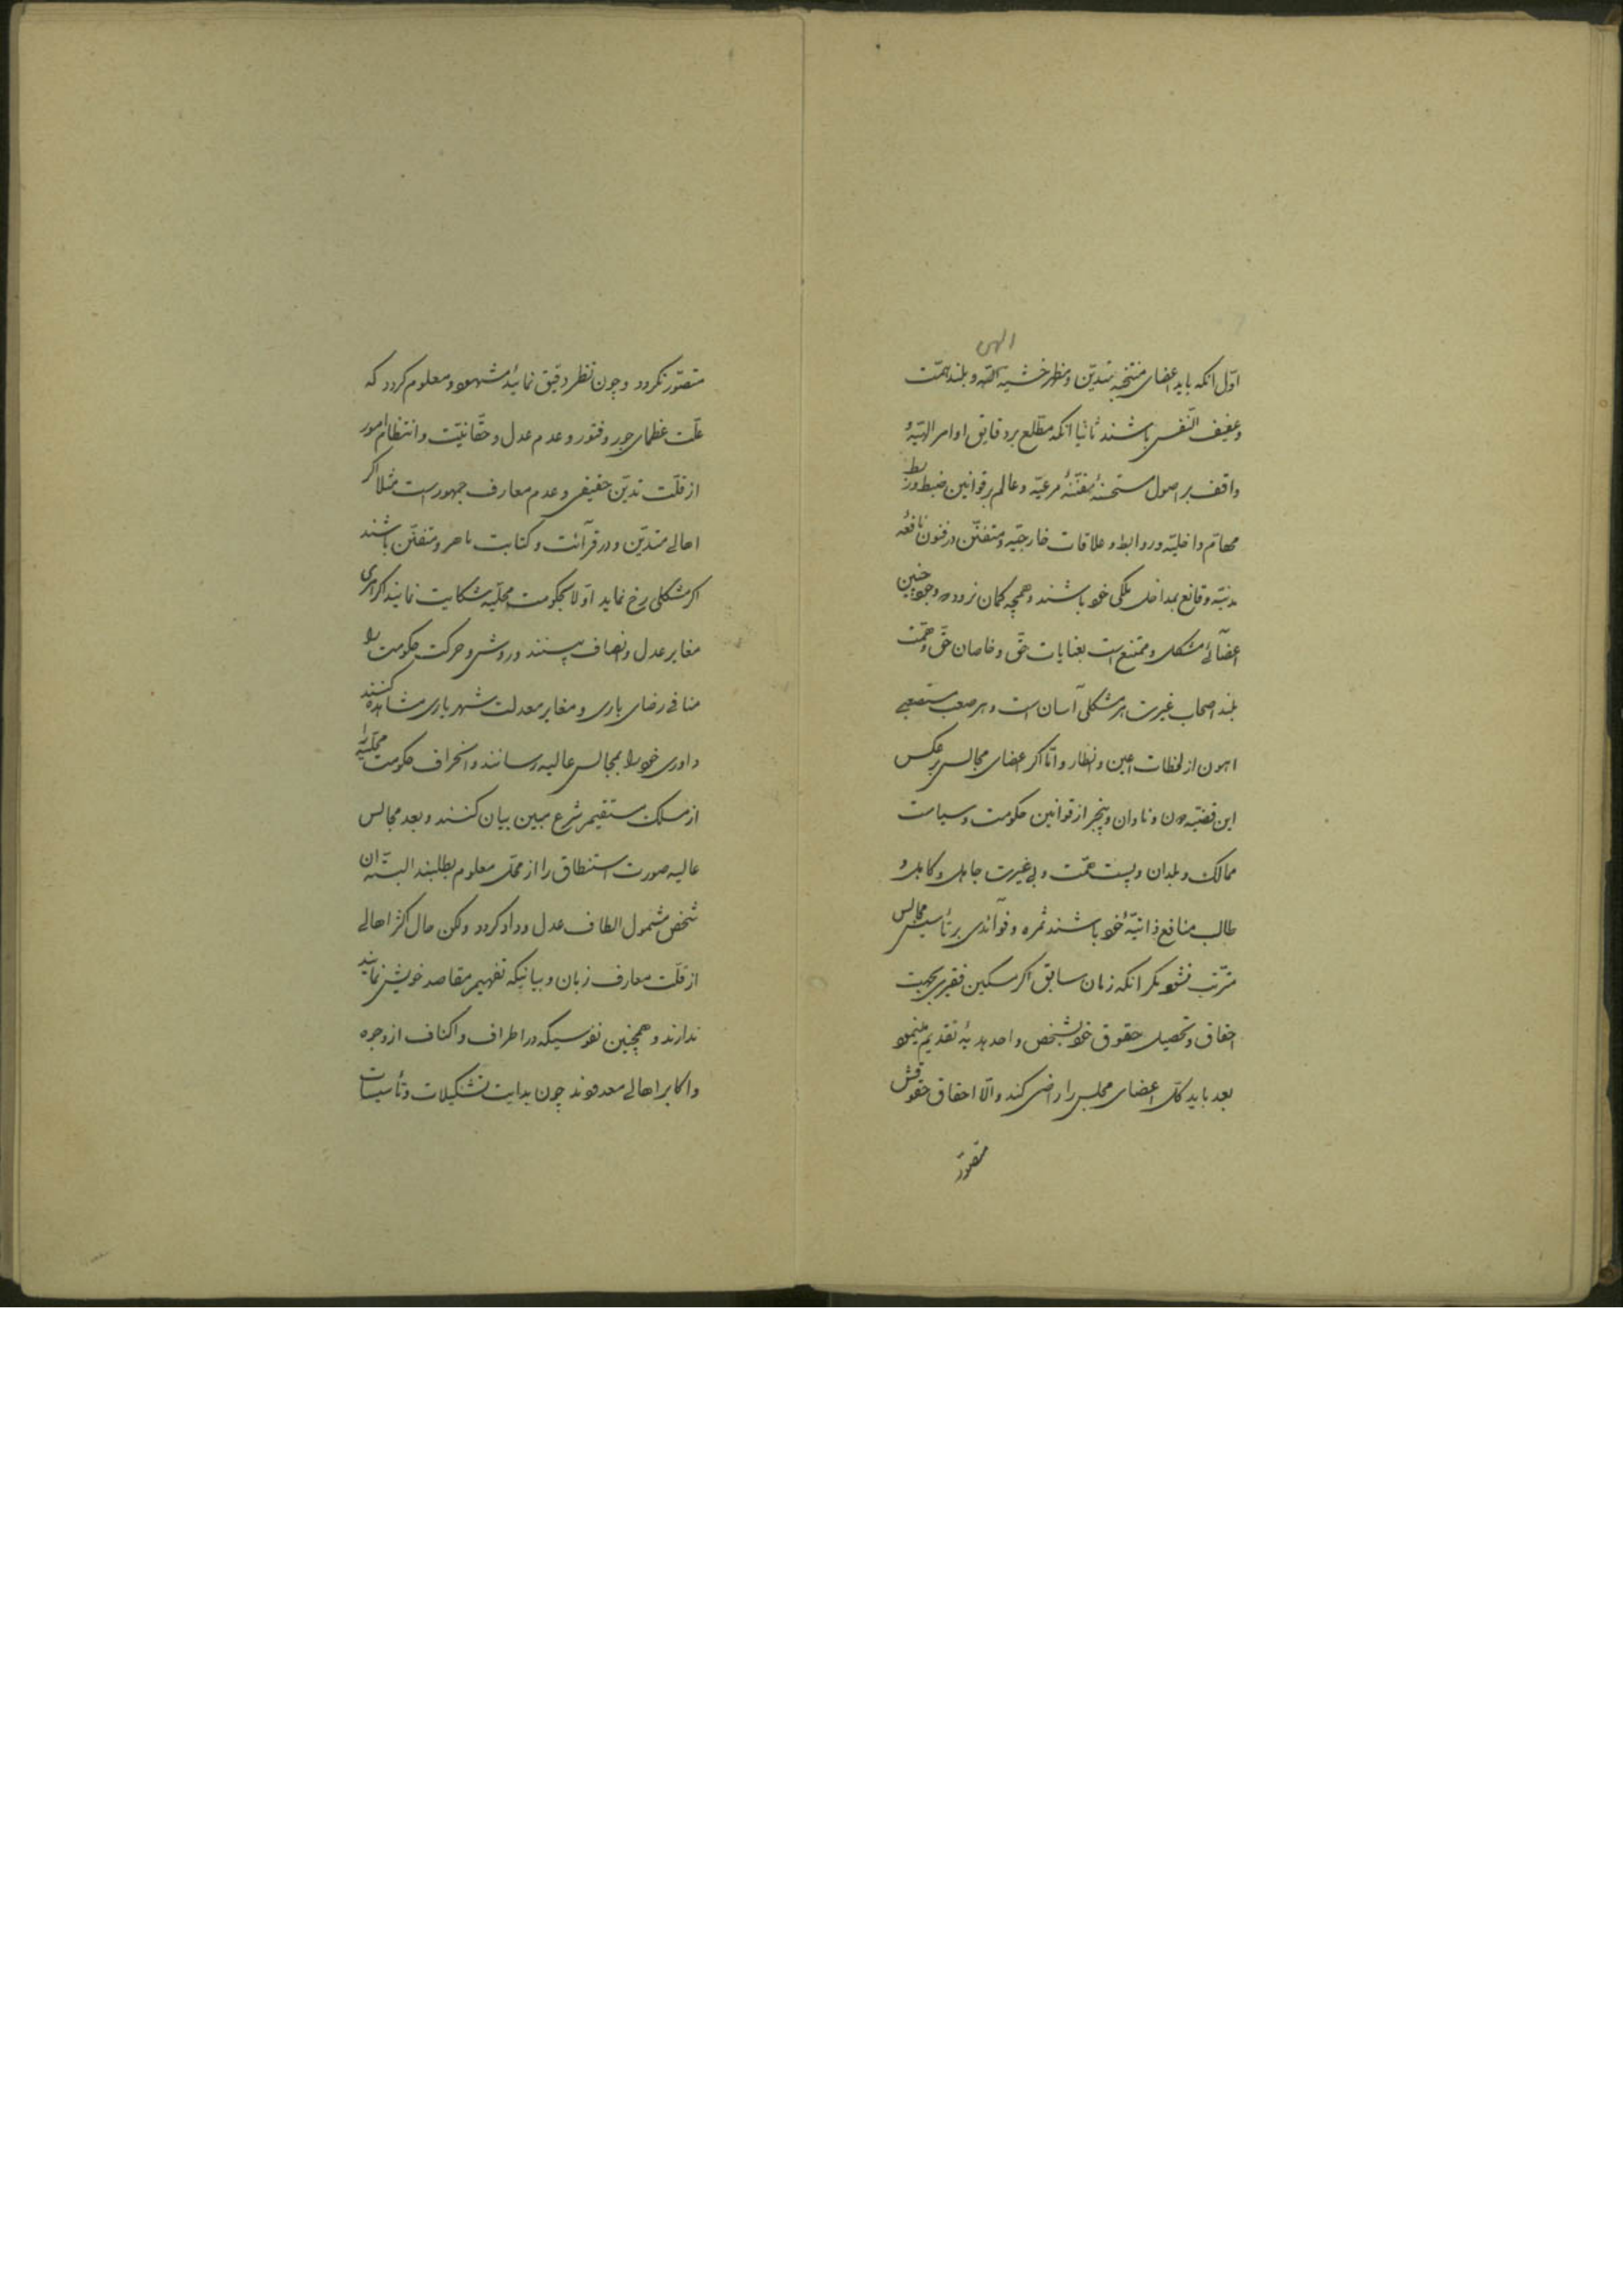 الهی
اوّل آنکه باید اعضای منتخبه متدیّن و مظهر خشیة اللّه و بلند همّت
و عفیف النّفس باشند ثانیاً آنکه مطّلع بر دقایق اوامر الهیّه و
واقف بر اصول مستحسنهٔ مقنّنهٔ مرعیّه و عالم بر قوانین ضبط و ربط
مهامّ داخلیّه و روابط و علاقات خارجیّه و متفنّن در فنون نافعه
مدنیّه و قانع بمداخل ملکی خود باشند و همچه گمان نرود که وجود چنین
اعضائی مشکل و ممتنع است بعنایات حقّ و خاصان حقّ و همّت
بلند اصحاب غیرت هر مشکلی آسان است و هر صعب مستصعبی
اهون از لحظات اعین و انظار و امّا اگر اعضای مجالس بر عکس
این قضیّه دون و نادان و بیخبر از قوانین حکومت و سیاست
ممالک و بلدان و پست همّت و بی غیرت جاهل و کاهل و
طالب منافع ذاتیّهٔ خود باشند ثمره و فوآئدی بر تأسیس مجالس
مترتّب نشود مگر آنکه زمان سابق اگر مسکین فقیری بجهت
احقاق و تحصیل حقوق خود بشخص واحد هدیهٔ تقدیم مینمود
بعد باید کلّ اعضای مجلس را راضی کند و الّا احقاق حقوقش
متصوّر
متصوّر نگردد و چون نظر دقیق نمائید مشهود و معلوم گردد که
علّت عظمای جور و فتور و عدم عدل و حقّانیّت و انتظام امور
از قلّت تدیّن حقیقی و عدم معارف جمهور است مثلا اگر
اهالی متدیّن و در قرآئت و کتابت ماهر و متفنّن باشند
اگر مشکلی رخ نماید اوّلا بحکومت محلّیه شکایت نمایند اگر امری
مغایر عدل و انصاف بینند و روش و حرکت حکومت را
منافی رضای باری و مغایر معدلت شهریاری مشاهده کنند
داوری خود را بمجالس عالیه رسانند و انحراف حکومت محلّیه را
از مسلک مستقیم شرع مبین بیان کنند و بعد مجالس
عالیه صورت استنطاق را از محلّ معلوم بطلبند البتّه آن
شخص مشمول الطاف عدل و داد گردد ولکن حال اکثر اهالی
از قلّت معارف زبان و بیانیکه تفهیم مقاصد خویش نمایند
ندارند و همچنین نفوسیکه در اطراف و اکناف از وجوه
و اکابر اهالی معدودند چون بدایت تشکیلات و تأسیسات